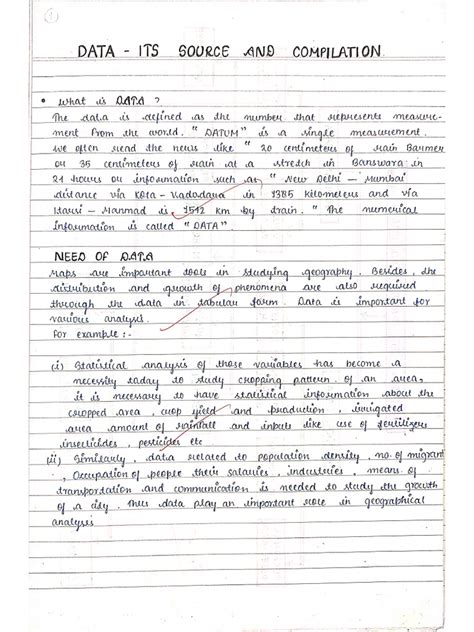 1
DATA - ITS SOURCE AND COMPILATION
• What is DATA ?
The data is defined as the number that represents measure-
ment from the world. "DATUM" is a single measurement.
We often read the news like " 20 centimeters of rain Barmer
or 35 centimeters of rain at a stretch in Banswara in
24 hours or information such as " New Delhi – Mumbai
distance via Kota – Vadodara in 1385 kilometers and via
Itarsi – Manmad is 1542 km by train. " The numerical
Information is called "DATA".
NEED OF DATA
Maps are important tools in studying geography. Besides, the
distribution and growth of phenomena are also required
through the data in tabular form. Data is important for
various analysis.
For example :-
(i) Statistical analysis of those variables has become a
necessity today to study cropping pattern of an area,
it is necessary to have statistical information about the
cropped area, crop yield and production, irrigated
area amount of rainfall and inputs like use of fertilizers
insecticides, pesticides etc
(ii) Similarly, data related to population density, no. of migrant
, Occupation of people their salaries, industries, means of
transportation and communication is needed to study the growth
of a city. Thus data play an important role in geographical
analysis